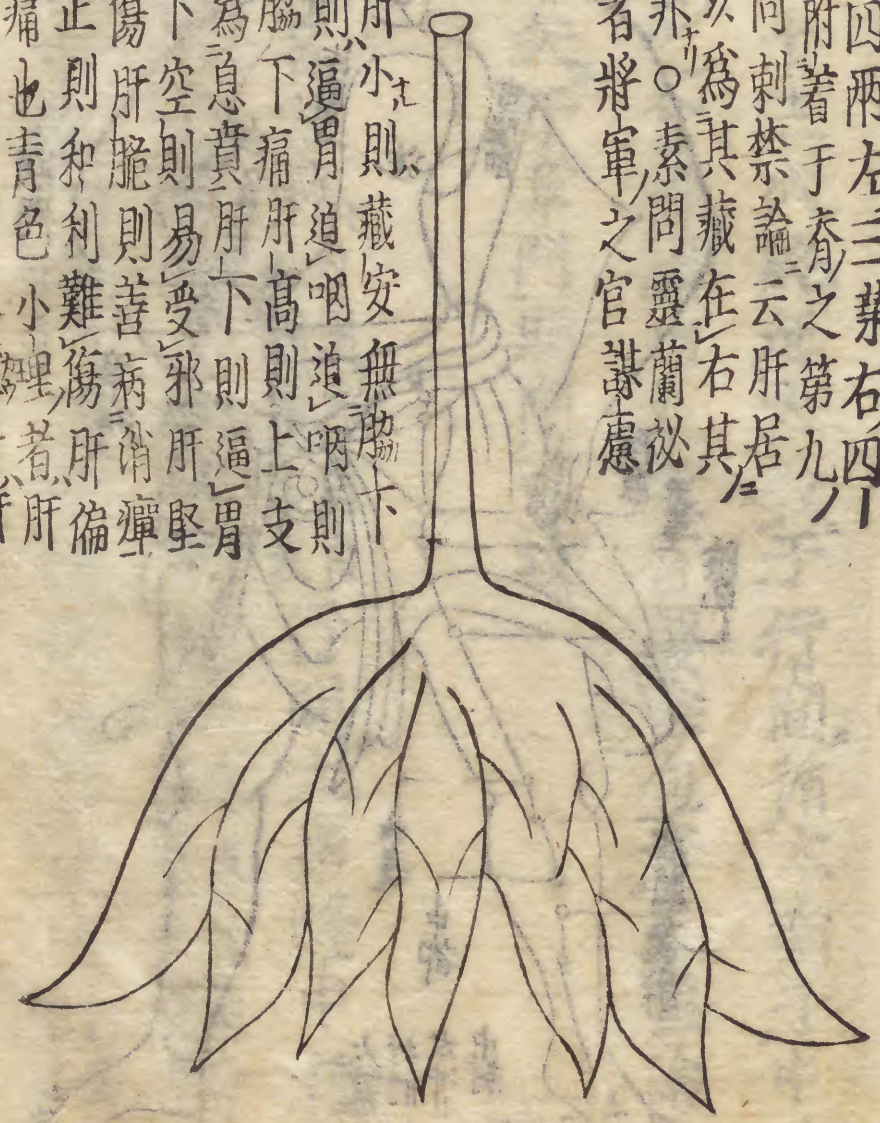 四兩左三葉右四八
附着于脊之第九
問刺禁論云肝居
以爲其藏在右其
非○素問靈蘭祕
者將軍之官謀慮
肝小則藏安無脇下
則逼胃迫咽迫咽則
脇下痛肝高則上支
為息賁肝下則逼胃
下空則易受邪肝堅
傷肝脆則善病消癉
正則和利難傷肝偏
痛也青色小理者肝